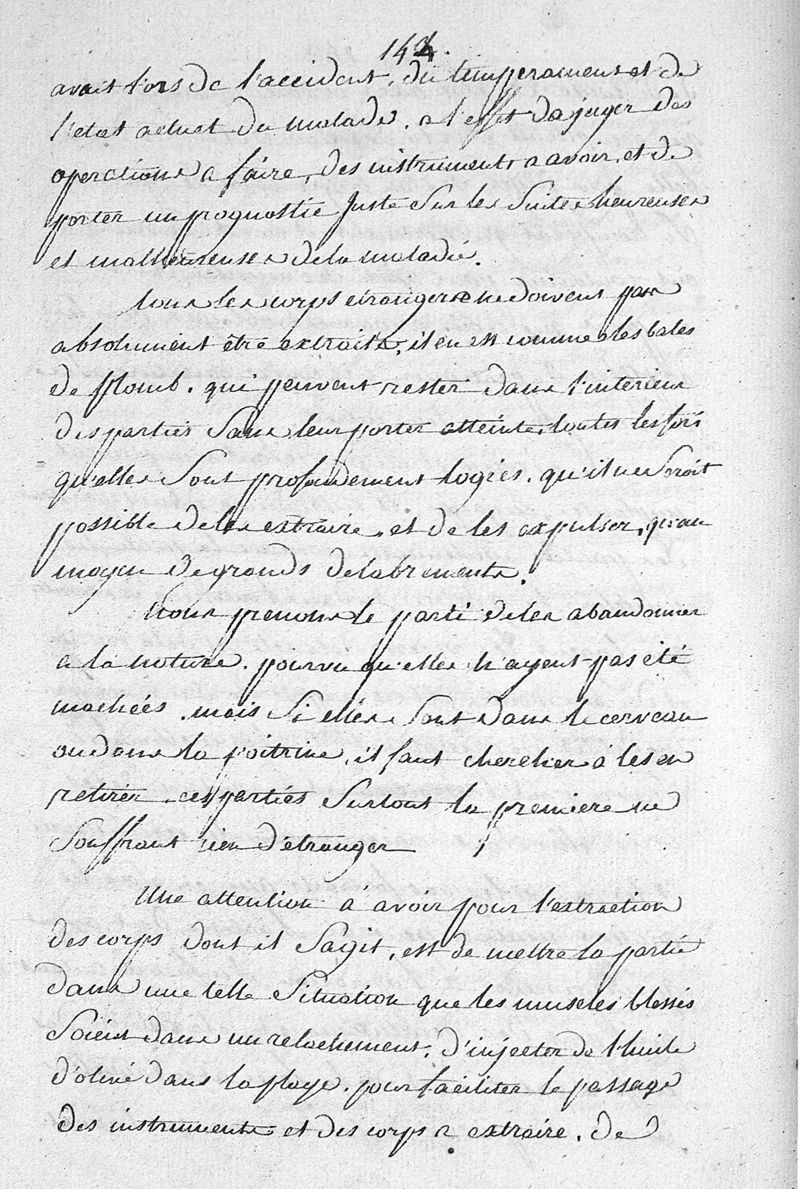 144.
avait lors de l'accident, du tempperament et de
l'etat actuel du malade, a l'effet de juger des
operations a faire, des instruments a avoir, et de
porter un prognostic juste sur les suites heureuses
et malheureuses de la maladie.
tous les corps etrangers ne doivent pas
absolument être extraits, il en est comme les bales
de plomb, qui peuvent rester dans l'interieur
des parties sans leur porter atteinte, toutes les fois
qu'elles sont profondement logées, qu'il ne seroit
possible de les extraire, et de les expulser, qu'au
moyen de grands delabrements.
Nous prenons le parti de les abandonner
a la nature, pourvu qu'elles n'ayent pas été
machées, mais si elles sont dans le cerveau
ou dans la poitrine, il faut chercher à les en
retirer, ces parties surtout la premiere ne
souffrant rien d'etranger
Une attention a avoir pour l'extraction
des corps dont il sagit, est de mettre la partie
dans une telle situation que les muscles blessés
soient dans un relachement, d'injecter de l'huile
d'olive dans la playe, pour faciliter le passage
des instruments et des corps a extraire, de